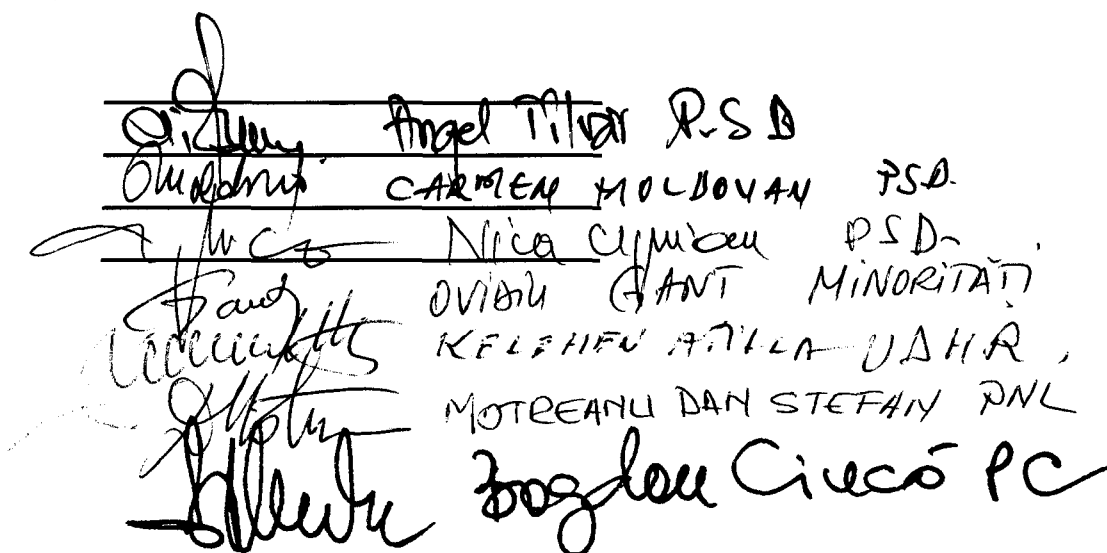 Angel Tîlvăr P.S.D
CARMEN MOLDOVAN PSD.
Nica Ciprian PSD-
OVIDIU GANT MINORITĂȚI
KELEMEN ATTILA UDMR.
MOTREANU DAN STEFAN PNL
Bogdan Ciucă PC